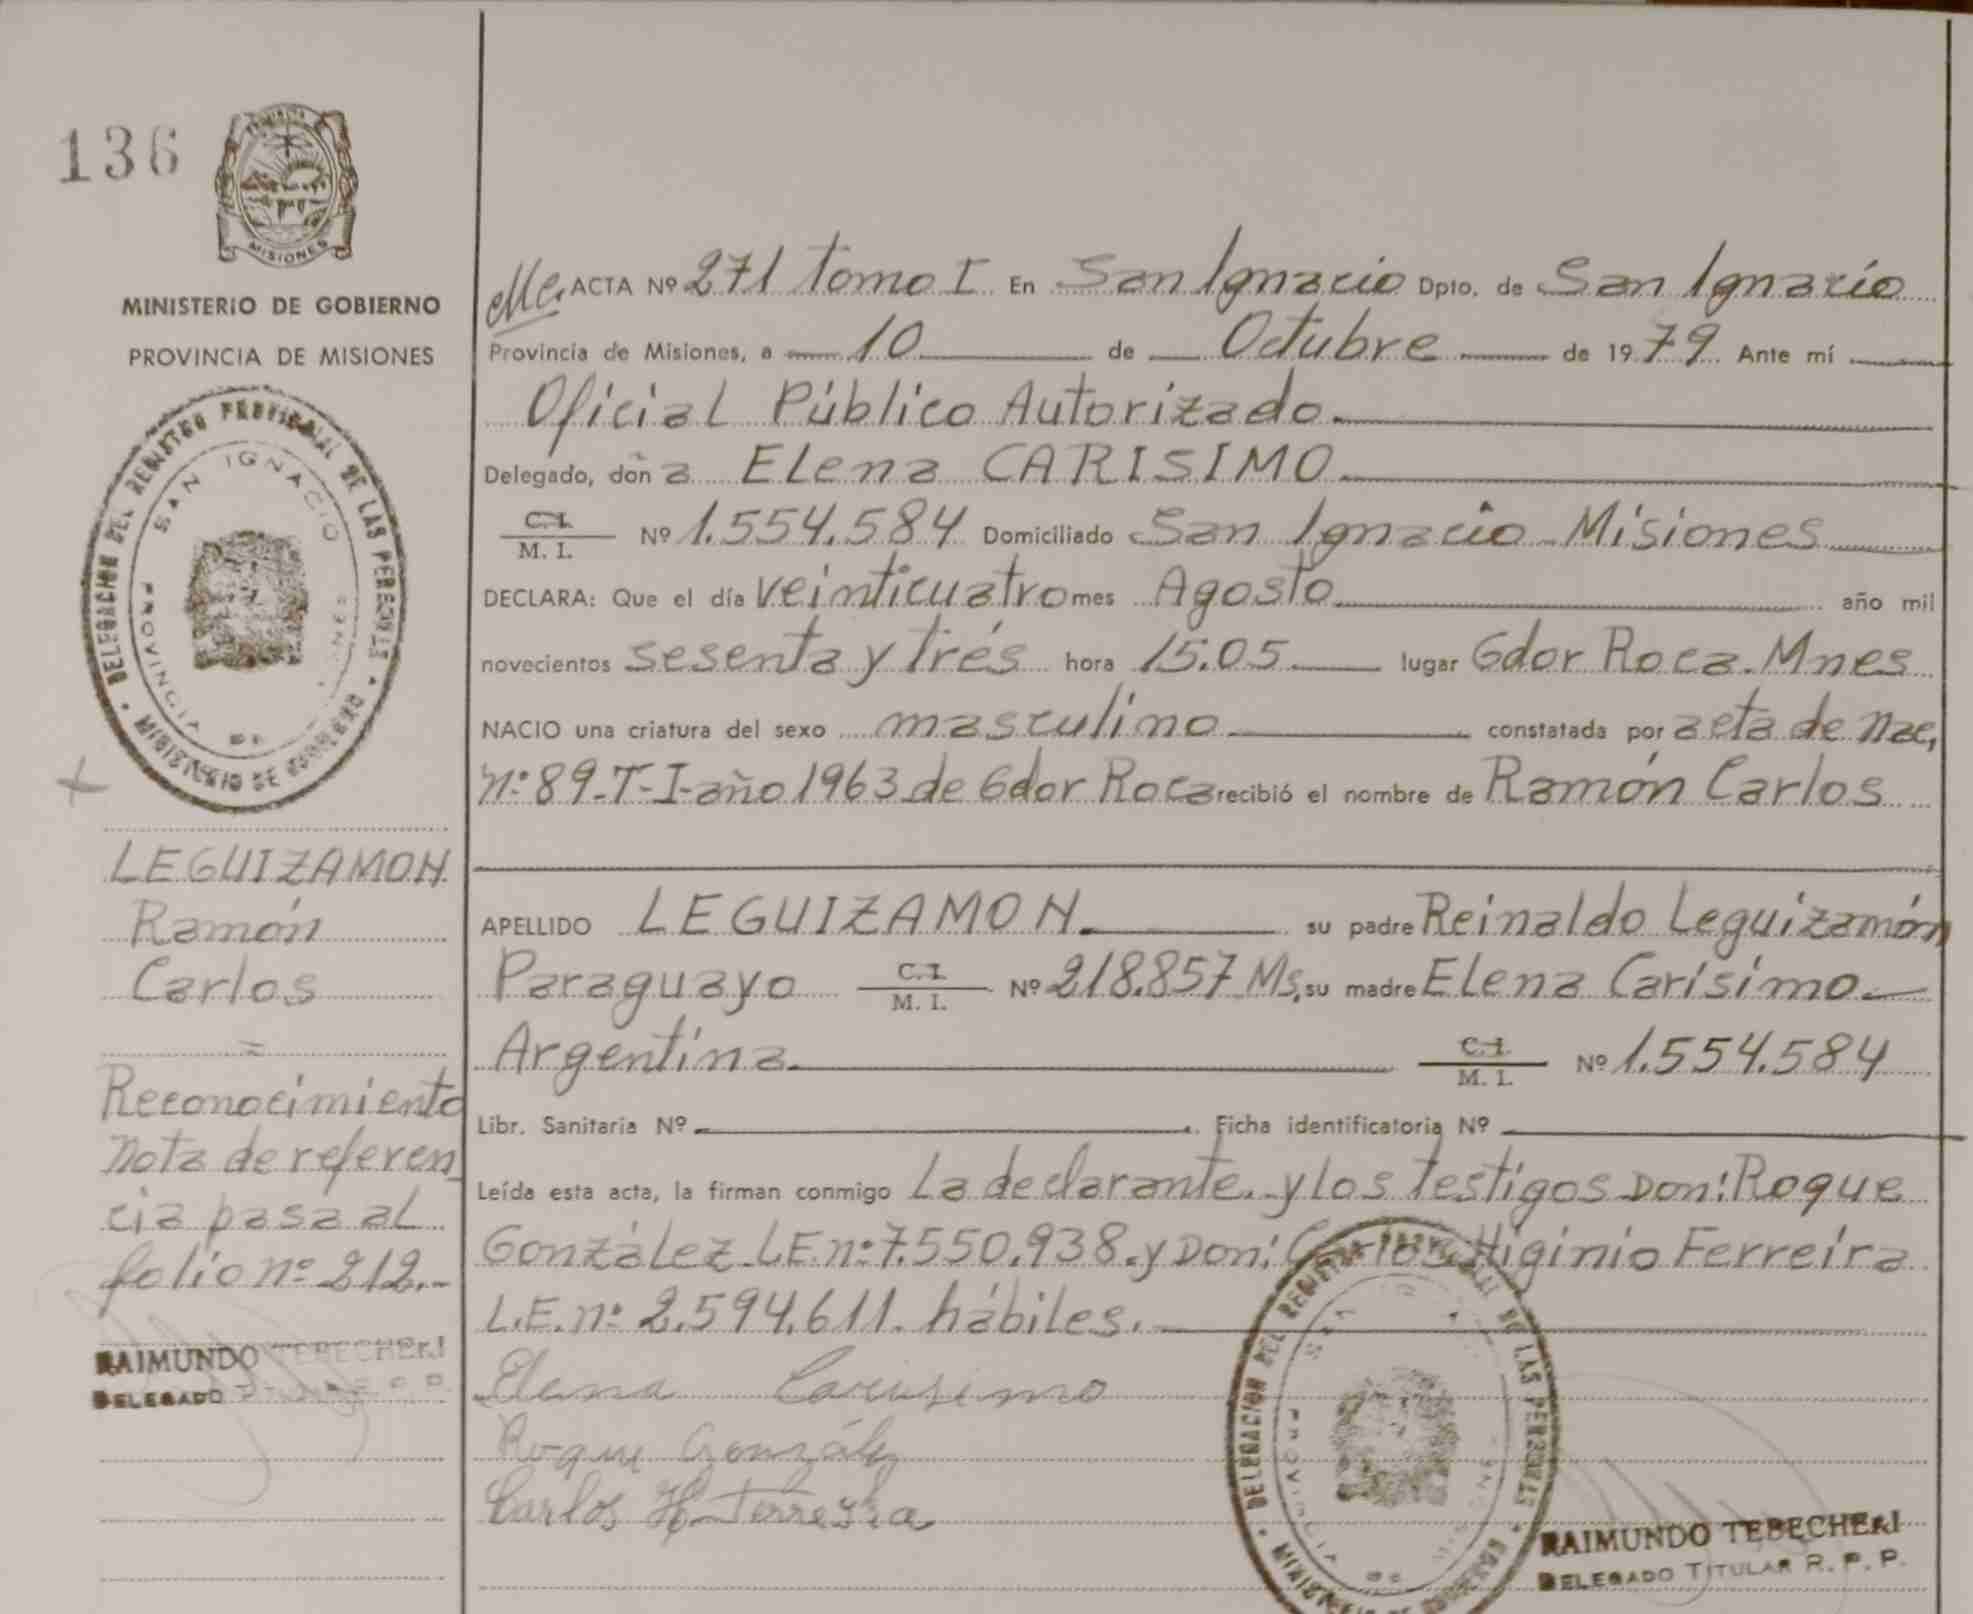 136
MISIONES
MINISTERIO DE GOBIERNO
PROVINCIA DE MISIONES
DELEGACION DEL REGISTRO PROVINCIAL DE LAS PERSONAS
MINISTERIO DE GOBIERNO
SAN IGNACIO
PROVINCIA DE
LEGUIZAMON
Ramón
Carlos
=
Reconocimiento
Nota de referen
cia pasa al
folio nº 212.-
RAIMUNDO TEBECHERI
DELEGADO TITULAR R. P. P.
ACTA Nº 271 tomo I En San Ignacio Dpto. de San Ignacio
Provincia de Misiones, a 10 de Octubre de 1979. Ante mí
Oficial Público Autorizado.
Delegado, doña Elena CARISIMO
C.I.
M. I. Nº 1.554.584 Domiciliado San Ignacio - Misiones
DECLARA: Que el día veinticuatro mes Agosto año mil
novecientos sesenta y trés hora 15.05 lugar Gdor Roca. Mnes
NACIO una criatura del sexo masculino constatada por acta de Nac,
nº 89-T-I-año 1963 de Gdor Roca recibió el nombre de Ramón Carlos
APELLIDO LEGUIZAMON. su padre Reinaldo Leguizamón
Paraguayo C.I. M. I. Nº 218.857 Ms, su madre Elena Carísimo
Argentina. C.I. M. I. Nº 1.554.584
Libr. Sanitaria Nº . Ficha identificatoria Nº
Leída esta acta, la firman conmigo La declarante. y los testigos Don: Roque
González L.E. nº 7.550.938. y Don: Carlos Higinio Ferreira
L.E. nº 2.594.611. hábiles.
Elena Carisimo
Roque González
Carlos H. Ferreyra
DELEGACION DEL REGISTRO PROVINCIAL DE LAS PERSONAS
MINISTERIO DE GOBIERNO
PROVINCIA DE
RAIMUNDO TEBECHERI
DELEGADO TITULAR R. P. P.